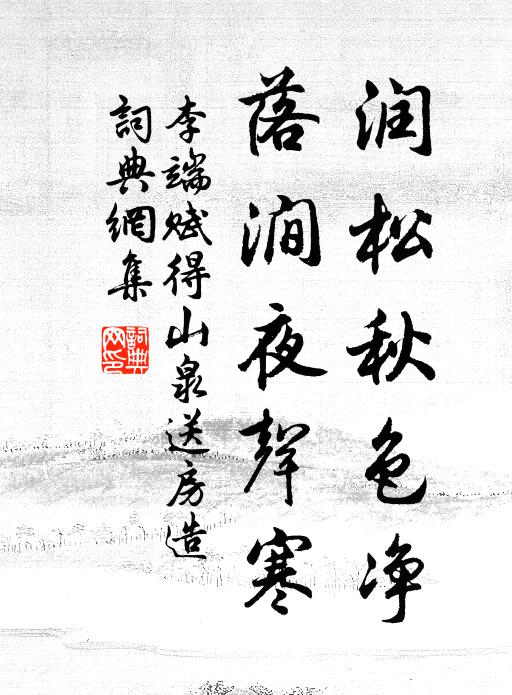 润松秋色净
落澗夜聲寒
李端赋得山泉送房造
詞典網集
詞典網印